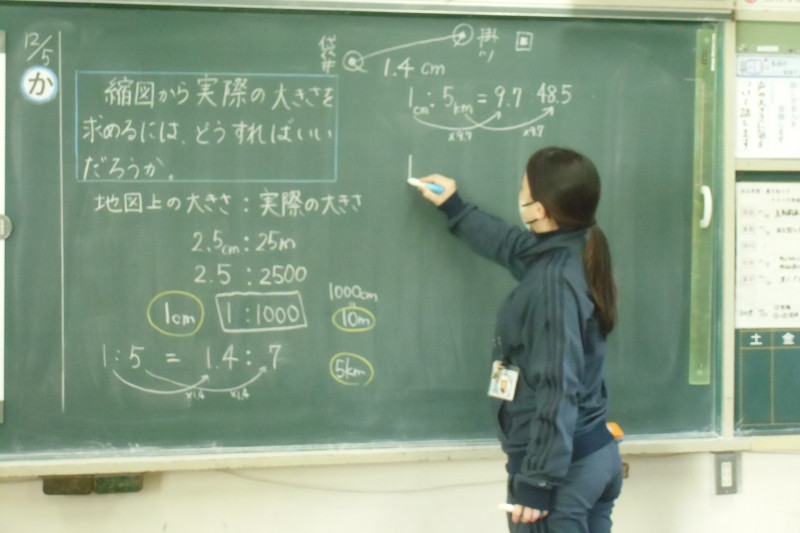 12/5
か
縮図から実際の大きさを
求めるには、どうすればいい
だろうか。
地図上の大きさ:実際の大きさ
2.5cm:25m
2.5:2500
1cm
1:1000
1000cm
10m
1:5 = 1.4:7
×1.4 ×1.4
5km
袋井
掛川
1.4cm
1cm:5km=9.7 48.5
×9.7 ×9.7
土 金